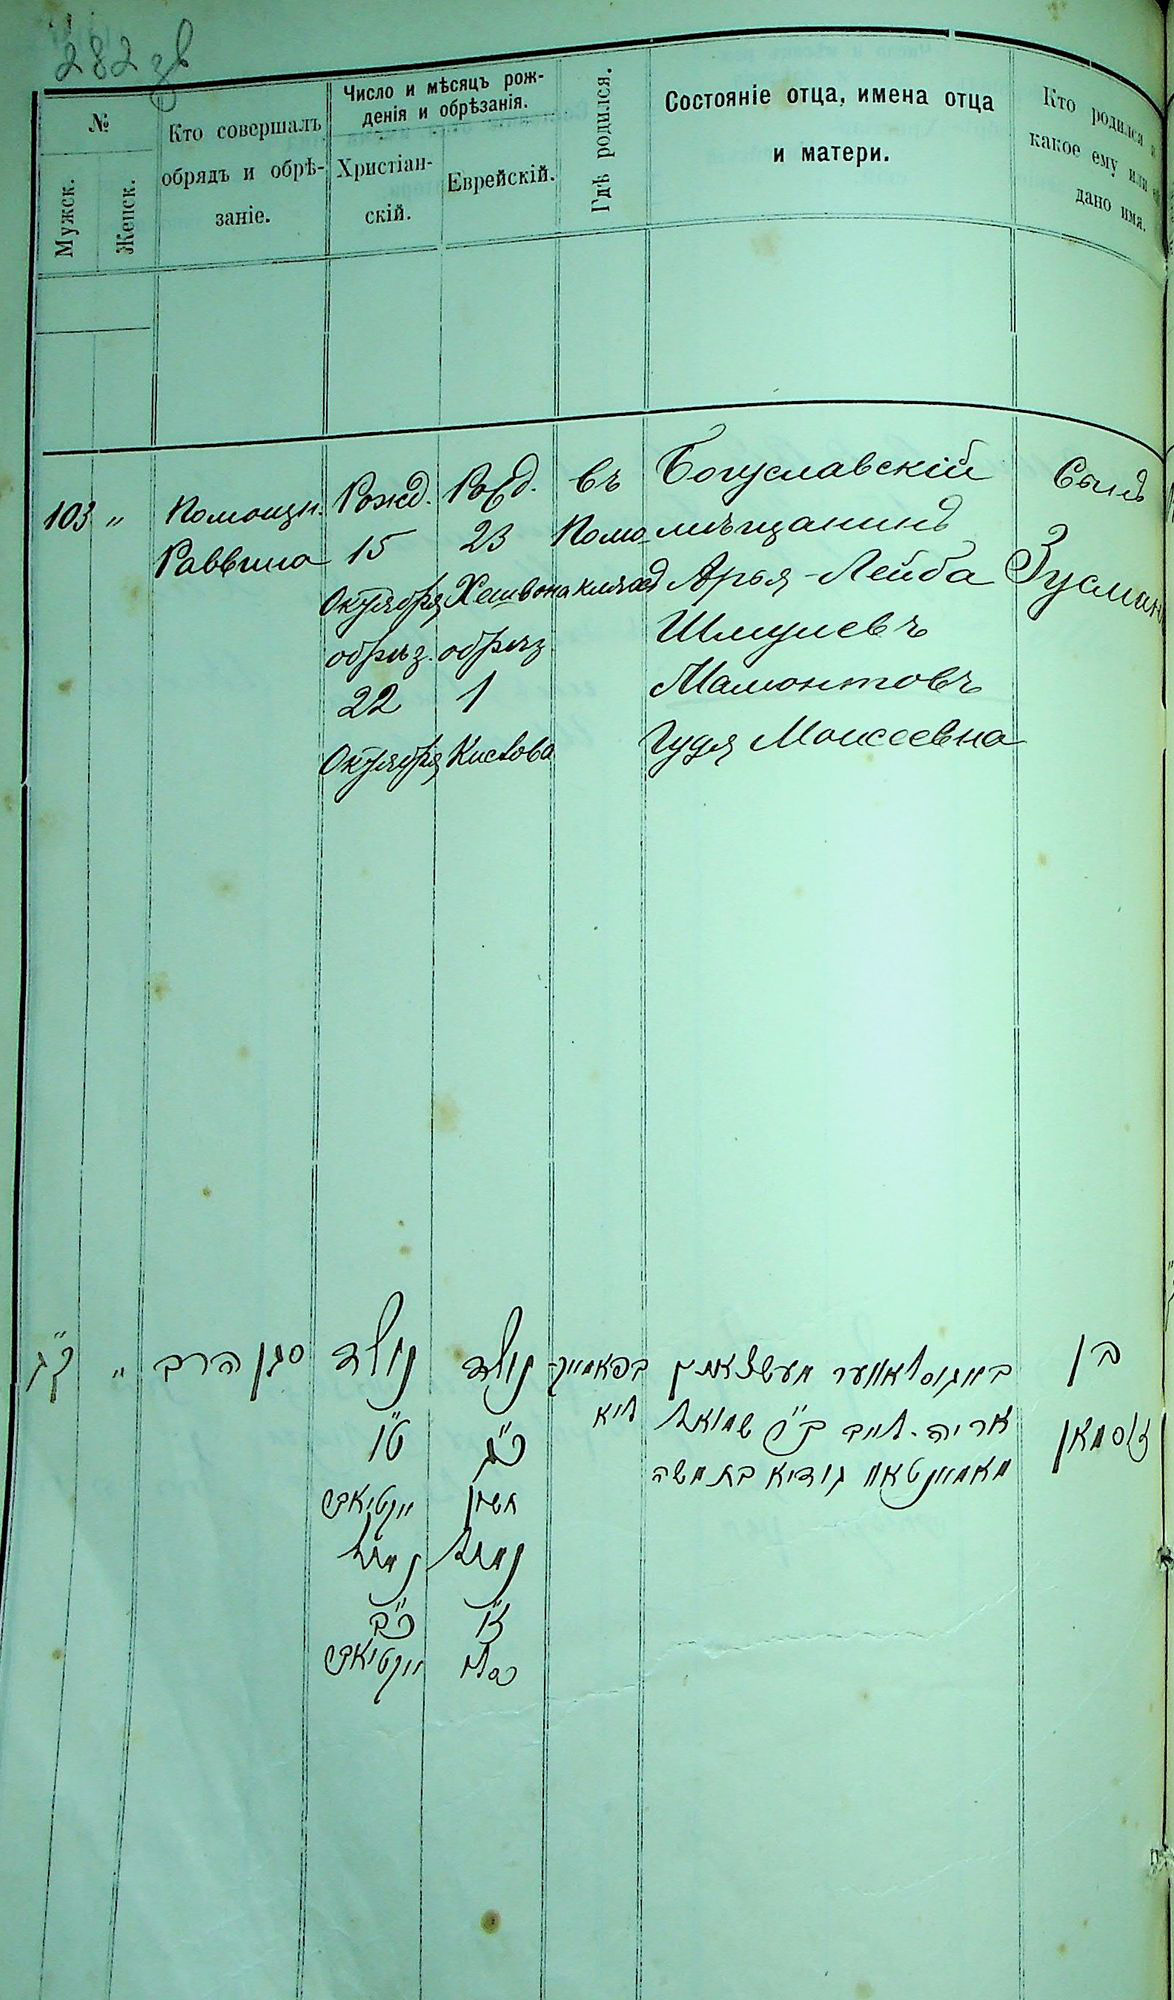 282 зв
№
Мужск.
Женск.
Кто совершалъ
обрядъ и обрѣ-
заніе.
Число и мѣсяцъ рож-
денія и обрѣзанія.
Христіан-
скій.
Еврейскій.
Гдѣ родился.
Состояніе отца, имена отца
и матери.
Кто родился и
какое ему или
дано имя.
103 "
Помощн.
Раввина
Рожд.
15
Октября
обрѣз.
22
Октября
Рожд.
23
Хешвона
обрѣз
1
Кислова
въ
Богуславскій
мѣщанинъ
Арья-Лейба
Шмулевъ
Мамонтовъ
Гудя Моисеевна
Сынъ
Зусманъ
ק"ג "
סגן הרב
נולד
ט"ו
אקטיאבר
נמול
כ"ב
אקטיאבר
נולד
כ"ג
חשון
נמול
כסלו
באגוסלאווער מעשצאנין
אריה-לייב ב"ר שמואל
מאמאנטאוו גודיא בת משה
בן
זוסמאן